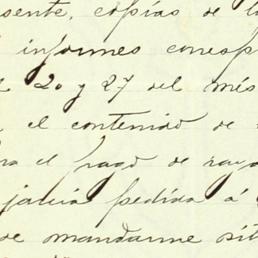 sente, copias de l
informes corresp
20 y 27 del més
el contenido de
ra el pago de raya
jalria pedida á
de mandarme sit